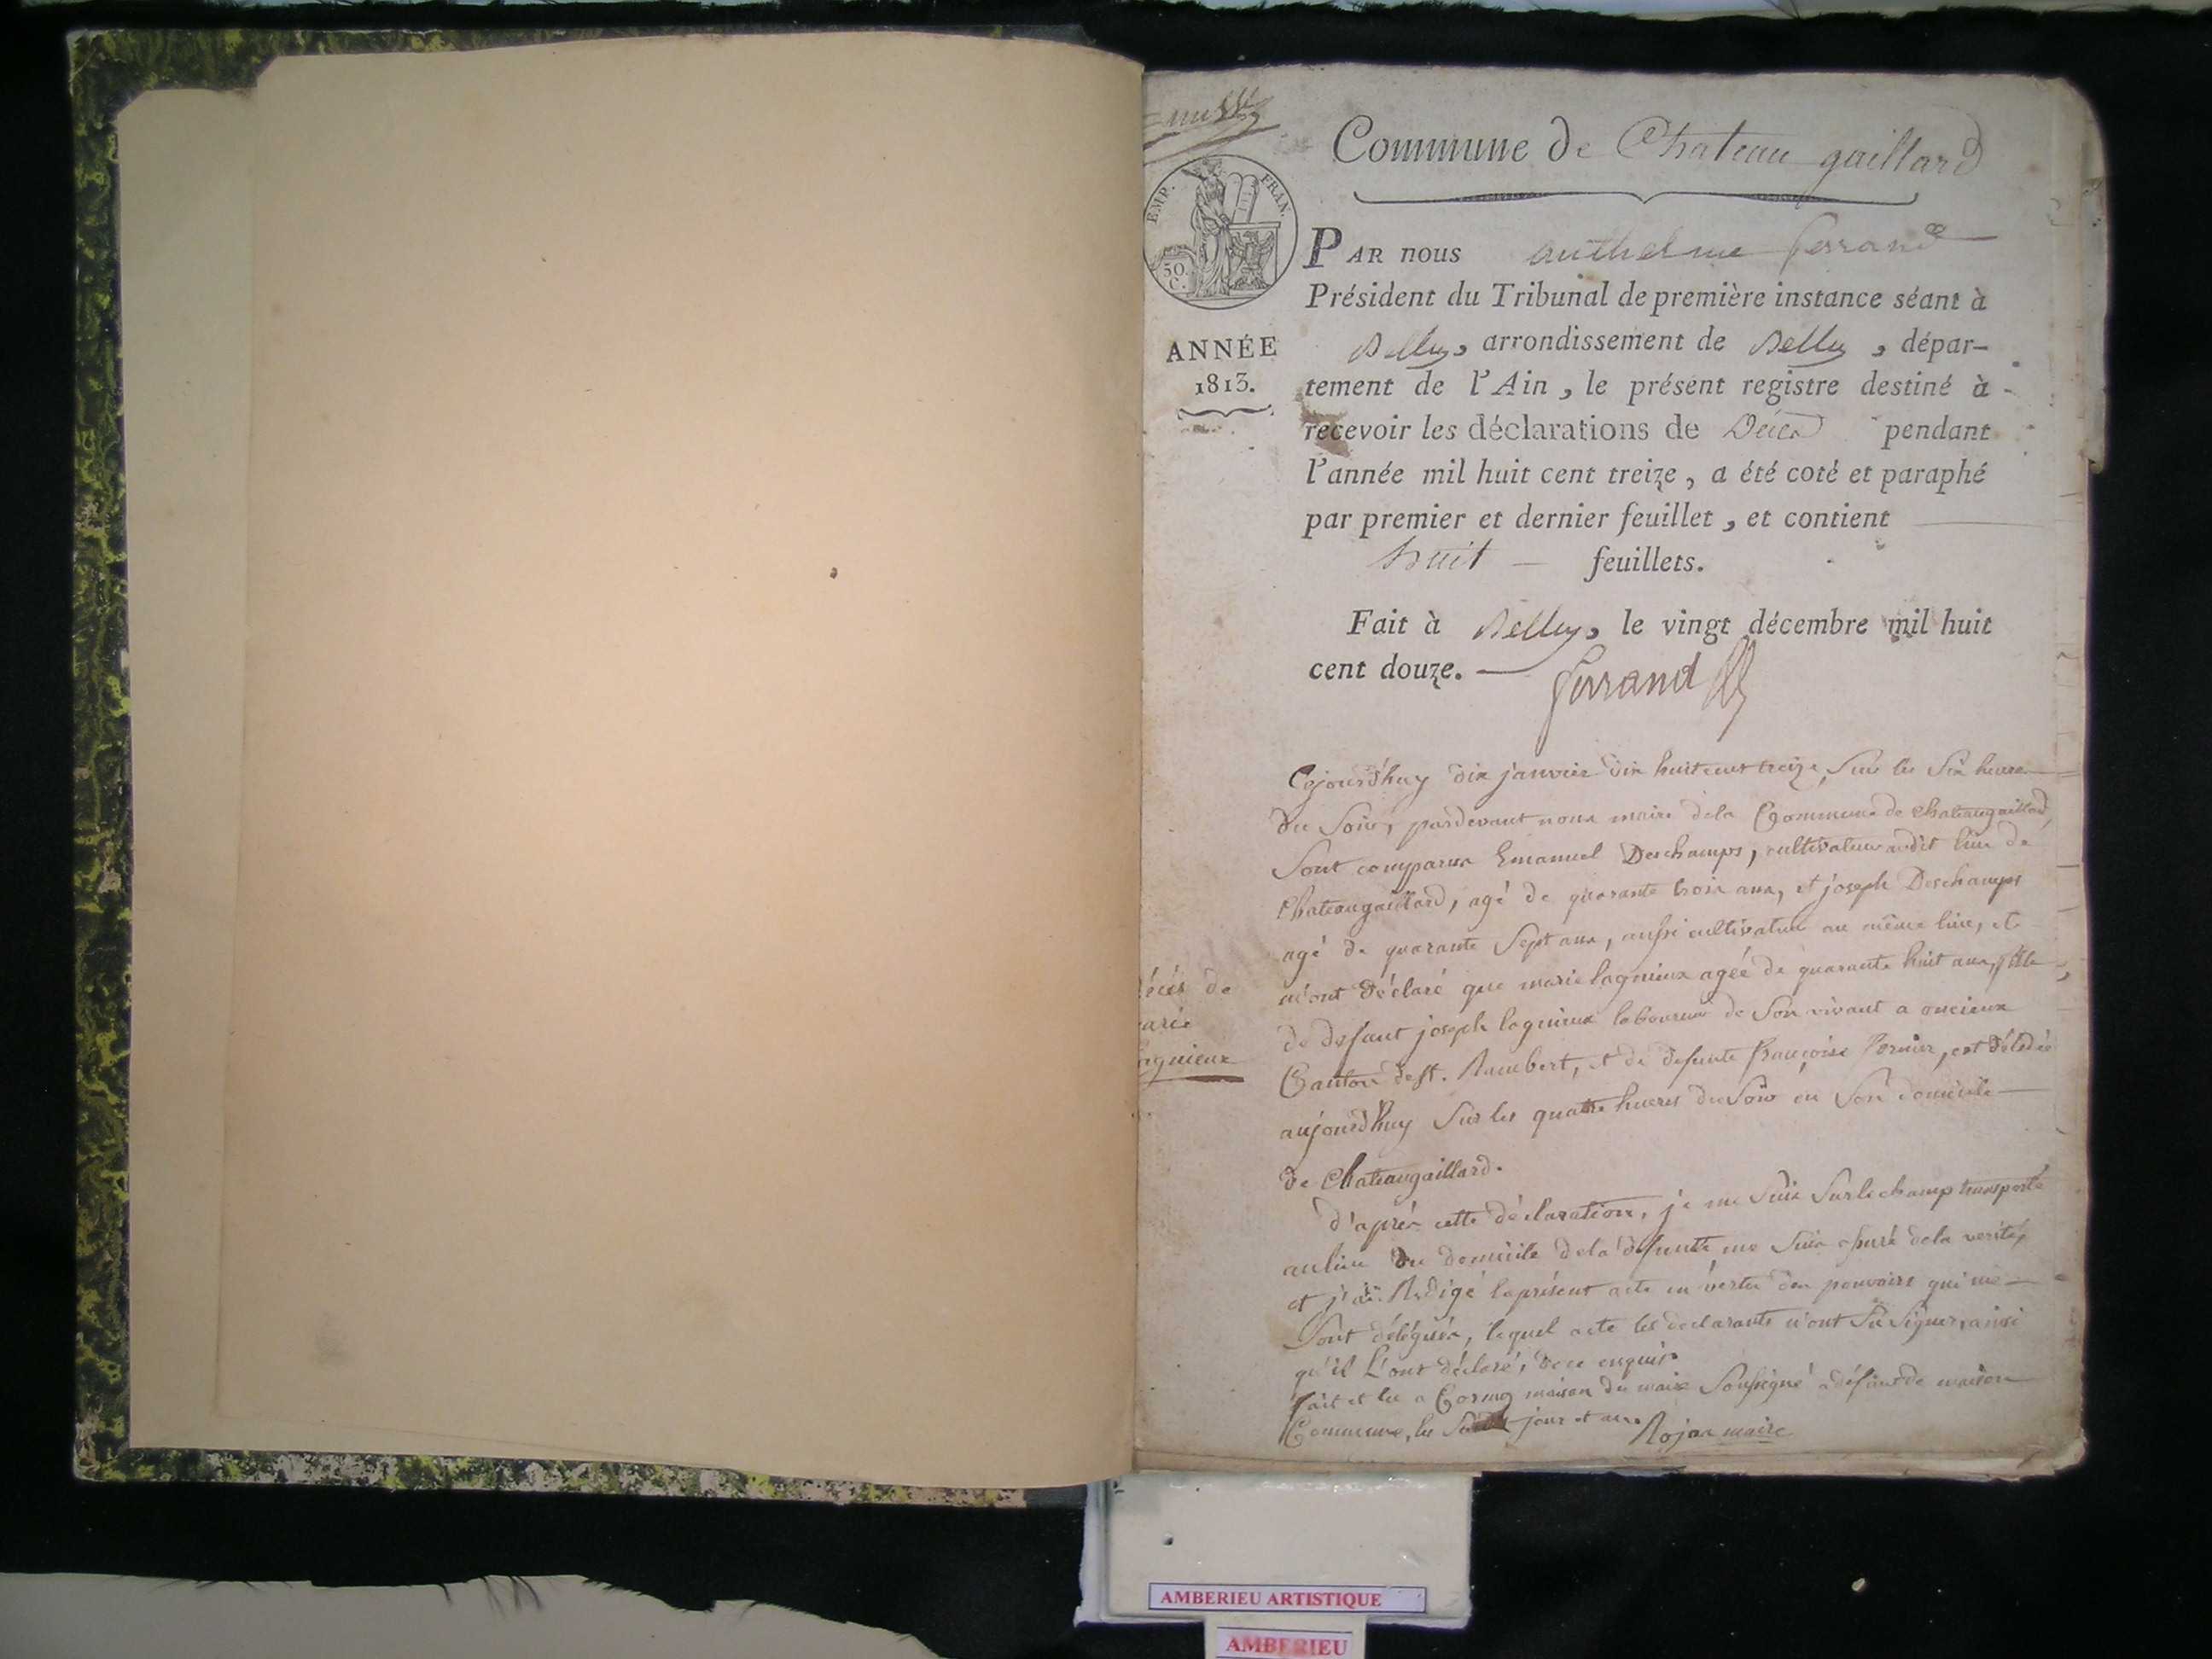 Commune de Chateau gaillard
EMP. FRAN.
50.
C.
ANNÉE
1813.
PAR nous anthelme ferrand
Président du Tribunal de première instance séant à
Belley, arrondissement de Belley, dépar-
tement de l'Ain, le présent registre destiné à
recevoir les déclarations de Décès pendant
l'année mil huit cent treize, a été coté et paraphé
par premier et dernier feuillet, et contient
huit feuillets.
Fait à Belley, le vingt décembre mil huit
cent douze.
ferrand
écès de
arie
agnieux
Cejourd'huy dix janvier dix huit cent treize, sur les six heures
du soir, pardevant nous maire dela Commune de chateaugaillard,
sont comparus Emanuel Deschamps, cultivateur audit lieu de
Chateaugaillard, agé de quarante trois ans, et joseph Deschamps
agé de quarante sept ans, aussi cultivateur au même lieu, et
m'ont déclaré que marie lagnieux agée de quarante huit ans, fille
de defunt joseph lagnieux laboureur de son vivant a oncieux
Canton de st. Rambert, et de defunte françoise Pernier, est décédée
aujourd'huy sur les quatre heures du soir en son domicile
de Chateaugaillard.
d'après cette déclaration, je me suis surlechamp transporté
aulieu du domicile dela defunte me suis assuré dela verité,
et j'ai Redigé leprésent acte en vertu des pouvoirs qui me
sont délégués, lequel acte les declarants n'ont su signer, ainsi
qu'il L'ont déclaré, de ce enquis.
fait et lu a Cormoz maison du maire soussigné adéfaut de maison
Commune, les jour et an. Rojon maire
AMBERIEU ARTISTIQUE
AMBERIEU